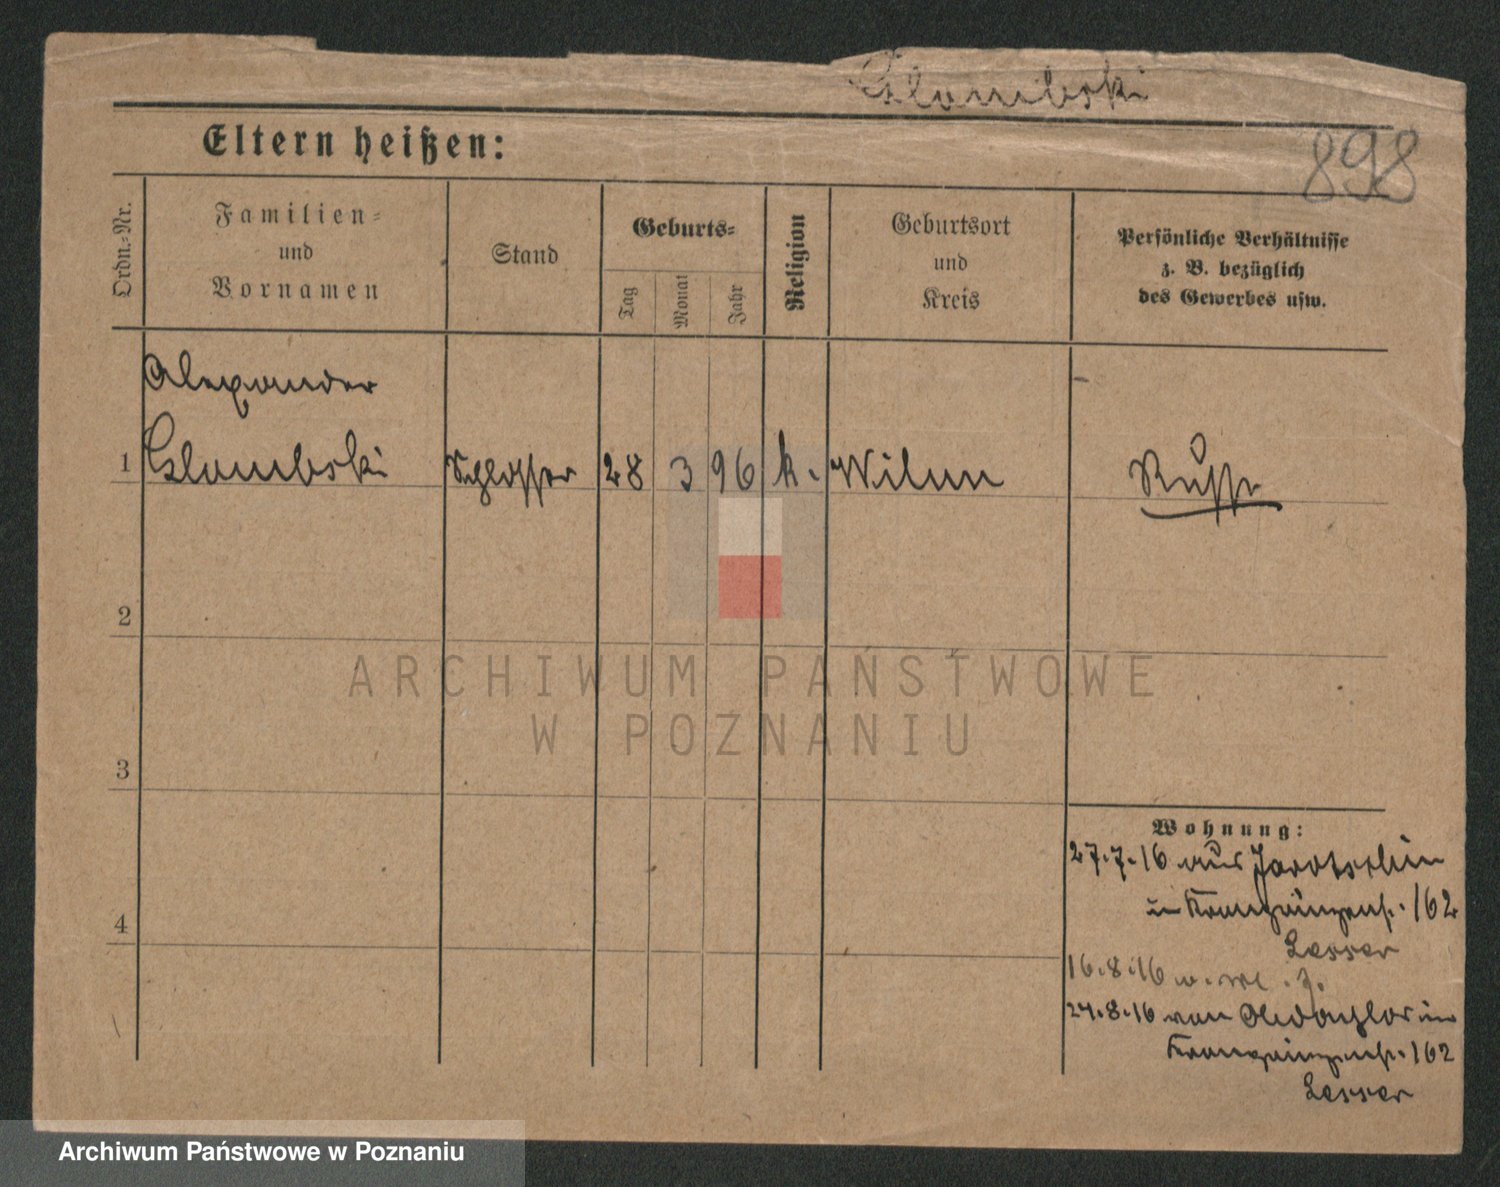 Glombski
898
Eltern heißen:
Ordn.-Nr.
Familien-
und
Vornamen
Stand
Geburts-
Tag
Monat
Jahr
Religion
Geburtsort
und
Kreis
Persönliche Verhältnisse
z. B. bezüglich
des Gewerbes usw.
Alexander
1 Glombski Schlosser 28 3 96 k. Wilna Russe
2
3
4
Wohnung:
27.7.16 aus Jarotschin
in Kronprinzenstr. 162
Lesser
16.8.16
24.8.16 von in
Kronprinzenstr. 162
Lesser
ARCHIWUM PAŃSTWOWE
W POZNANIU
Archiwum Państwowe w Poznaniu